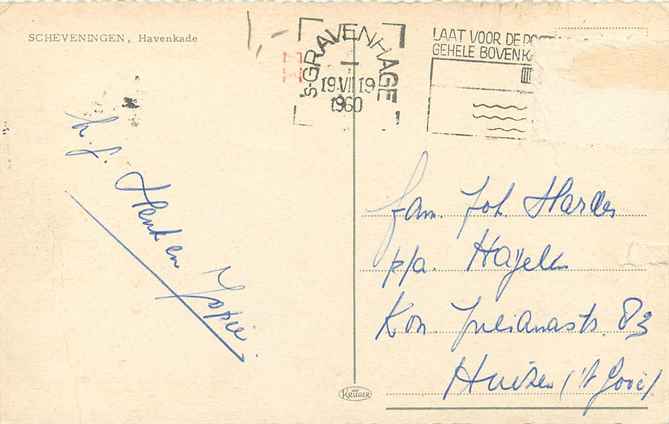 SCHEVENINGEN, Havenkade
's-GRAVENHAGE
19.VII 19
1960
LAAT VOOR DE
GEHELE BOVENK
h.g. Henk en Jopie.
fam. Joh. Harder
p/a. Hagelen
Kon. Julianastr. 83
Huizen ('t Gooi)
KRÜGER